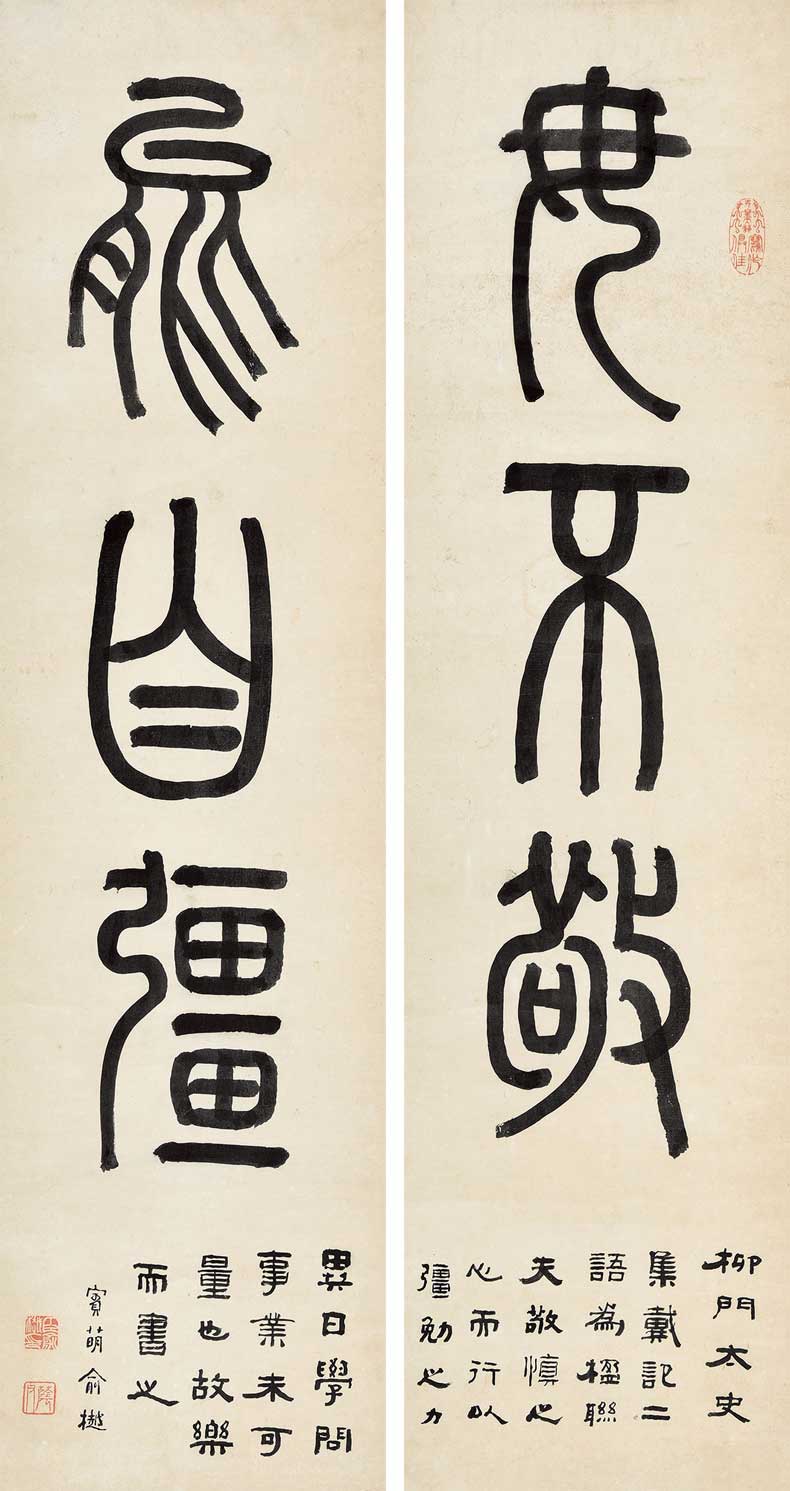 毋不敬
柳門太史
集戴記二
語為楹聯
夫敬慎之
心而行以
彊勉之力
能自彊
異日學問
事業未可
量也故樂
而書之
賓萌俞樾